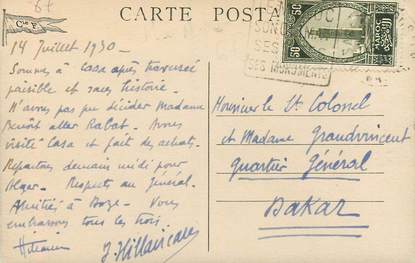 67
Cie F
CARTE POSTA
14 Juillet 1930 -
Sommes à Casa après traversée
paisible et sans histoire.
N'avons pas pu décider Madame
Benoît aller Rabat. Avons
visité Casa et fait des achats.
Repartons demain midi pour
Alger. Respects au Général.
Amitiés à Boze. Vous
embrassons tous les trois.
MAROC
SES
SES MONUMENTS
Monsieur le Lt Colonel
et Madame Grandvincent
Quartier Général
Dakar